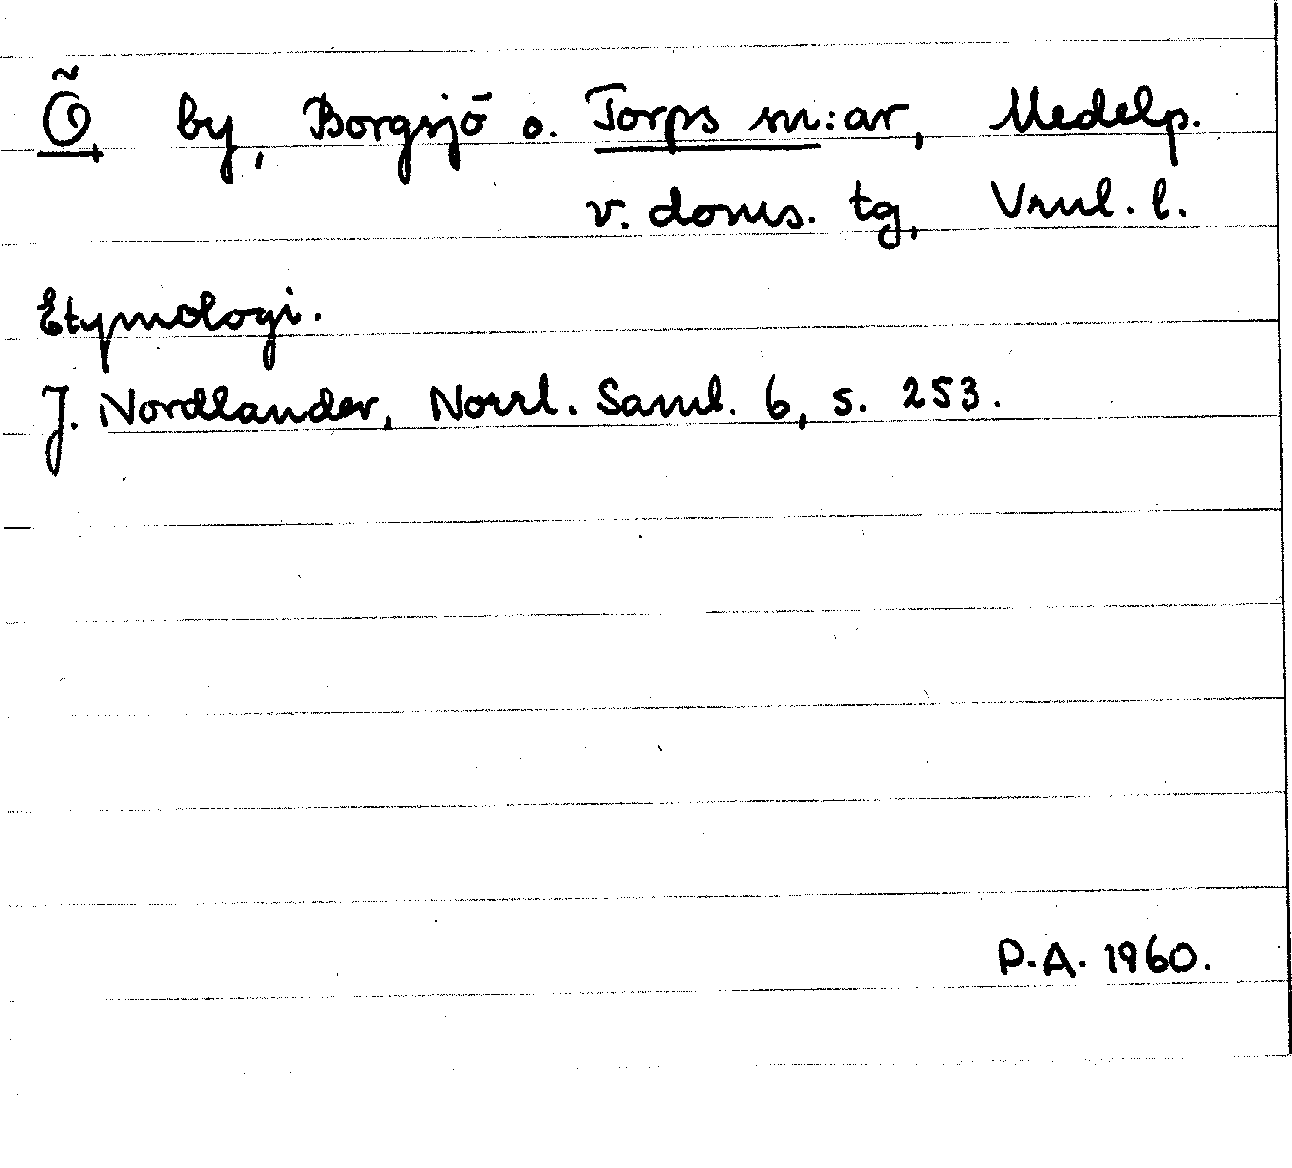 Ö, by, Borgsjö o. Torps sn:ar, Medelp.
v. doms. tg, Vrnl. l.
Etymologi.
J. Nordlander, Norrl. Saml. 6, s. 253.
P.A. 1960.